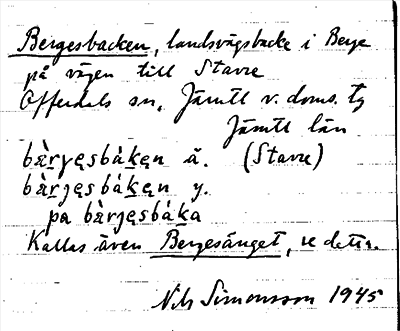 Bergesbacken, landsvägsbacke i Berge
på vägen till Stavre
Offerdals sn, Jämtl v. doms. tg
Jämtl län
bàrjesbákęn ä. (Stavre)
bàrjęsbákęn y.
pa bàrjęsbáka
Kallas även Bergesänget, se detta.
Nils Simonsson 1945